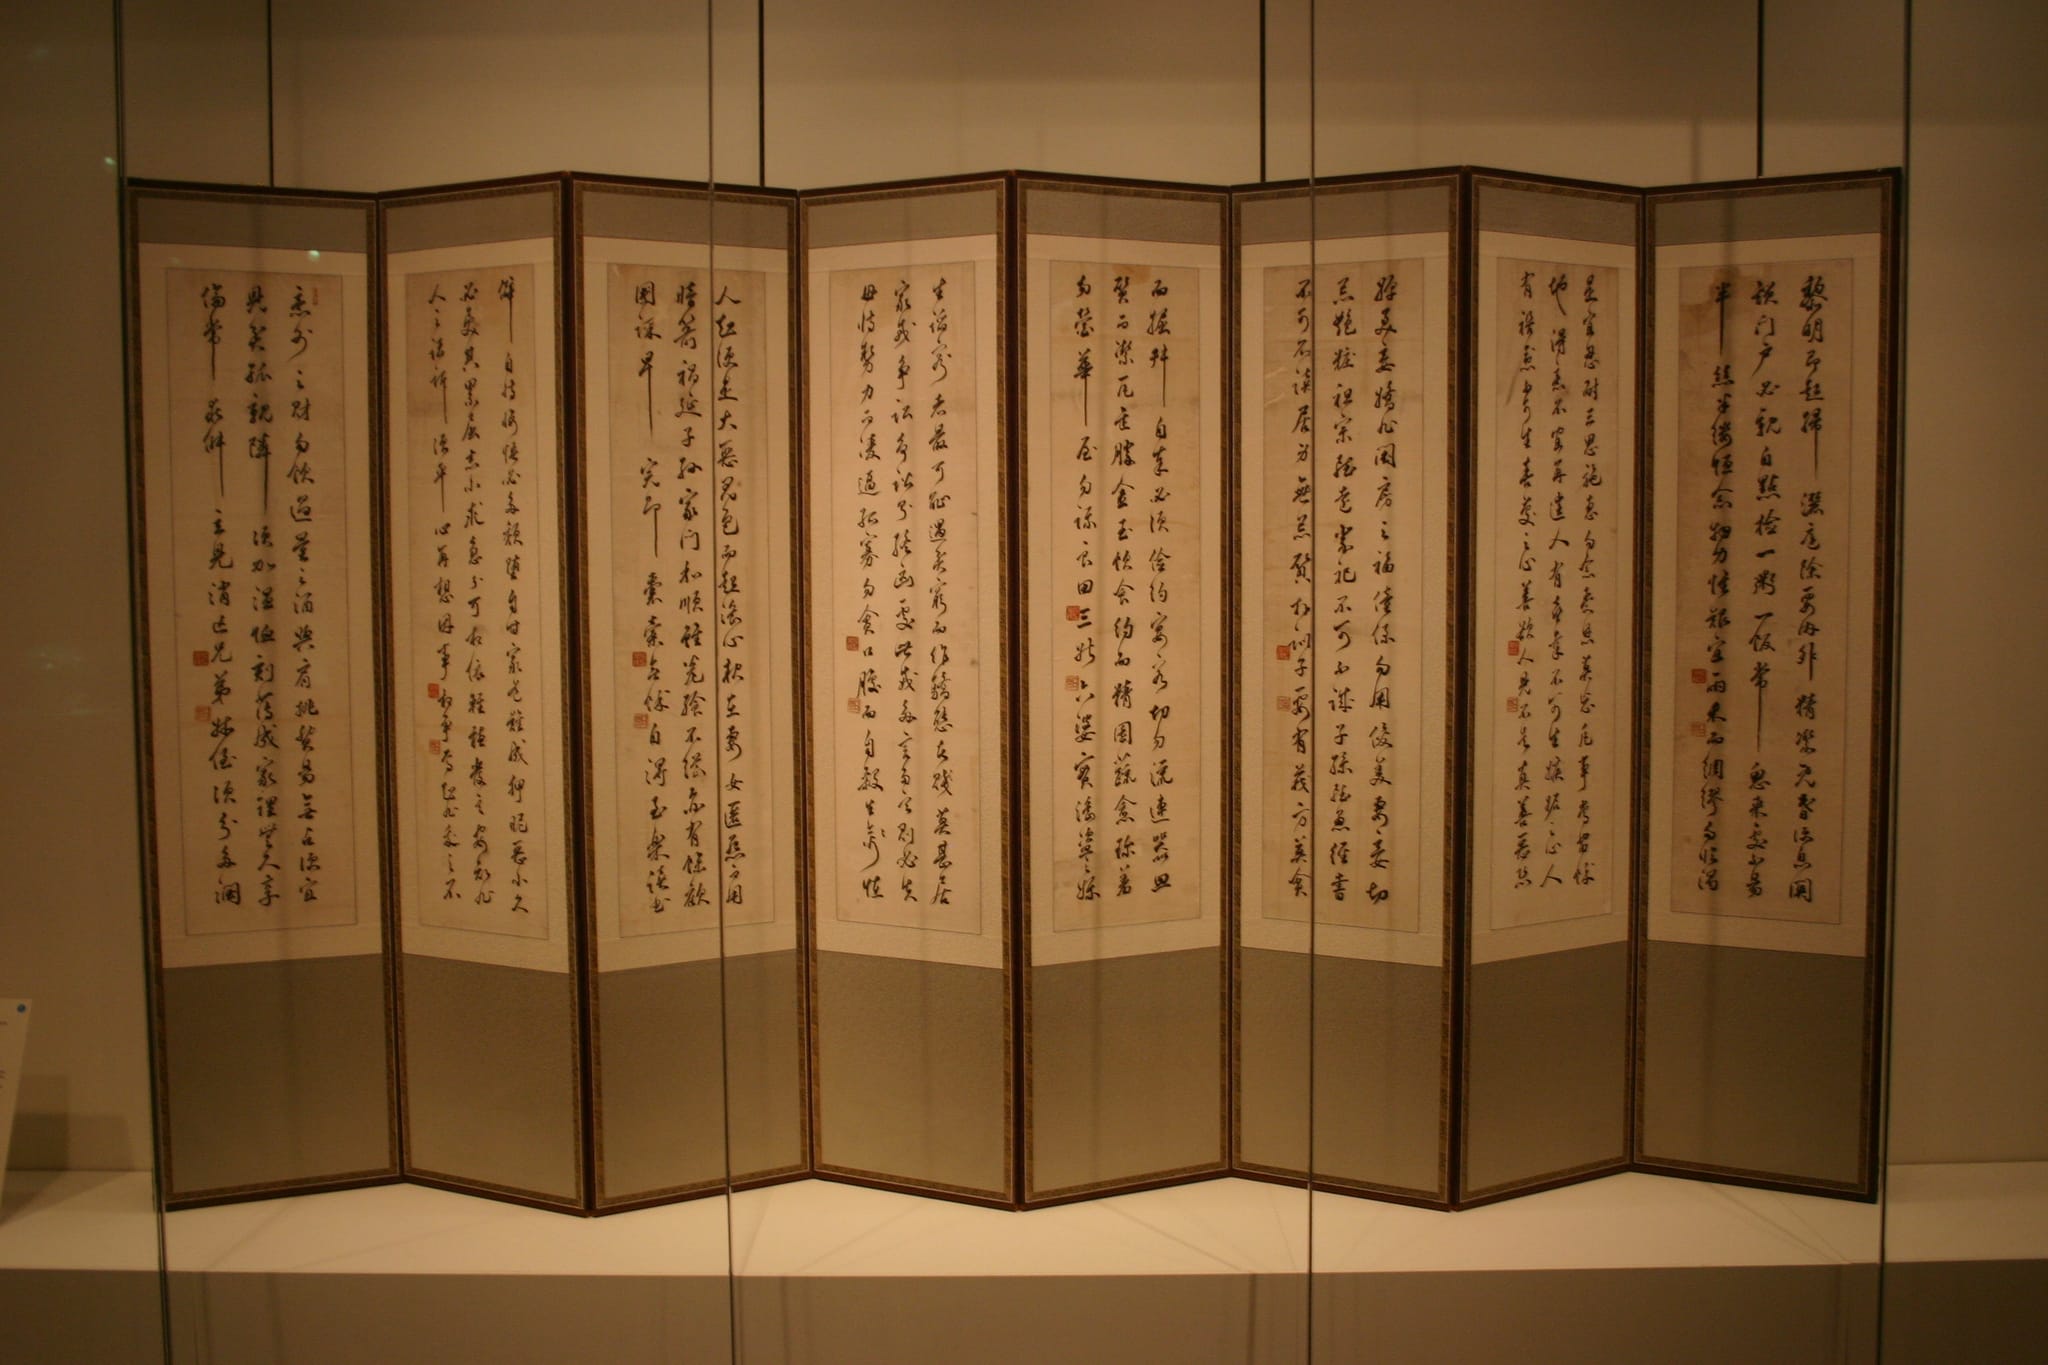 黎明即起掃灑庭除要內外精潔既昏便息関
鎖门戶必親自點檢一粥一飯當思來處不易
半絲半縷恒念物力惟艱宜雨未而綢繆勿臨渴
是宜忍耐三思施惠勿念受恩莫忘凡事當留餘
地得意不宜再往人有喜慶不可生嫉妬之心人
有禍患不可生喜幸之心善欲人見不是真善惡恐
婢美妾嬌非閨房之福僮僕勿用俊美妻妾切
忌艷粧祖宗雖遠祭祀不可不誠子孫雖愚經書
不可不讀居身無忌質朴訓子要有義方莫貪
而掘井自奉必須儉約宴客切勿流連器皿
質而潔瓦缶勝金玉飲食約而精園蔬愈珍羞
勿營華屋勿謀良田三姑六婆實淫盜之媒
生諂容者最可恥遇貧窮而作驕態者賤莫甚居
家戒爭訟多訟則終凶處世戒多言多言則必失
毋恃勢力而凌逼孤寡勿貪口腹而自殺生禽
人知便是大惡見色而起淫心報在妻女匿怨而用
暗箭禍延子孫家门和順雖饔飧不繼亦有餘歡
國課早完即囊橐無餘自得至樂讀書
僻自恃悔悟必多頹墮自甘家道難成狎昵惡少久
必受其累屈志老成急則可相依輕聽發言安知非
人之譖訴須平心再想因事相爭焉知非我之不
意外之財勿飲過量之酒與肩挑貿易毋占便宜
見貧苦親隣須加溫恤刻薄成家理無久享
倫常乖舛立見消亡兄弟叔侄須分多潤